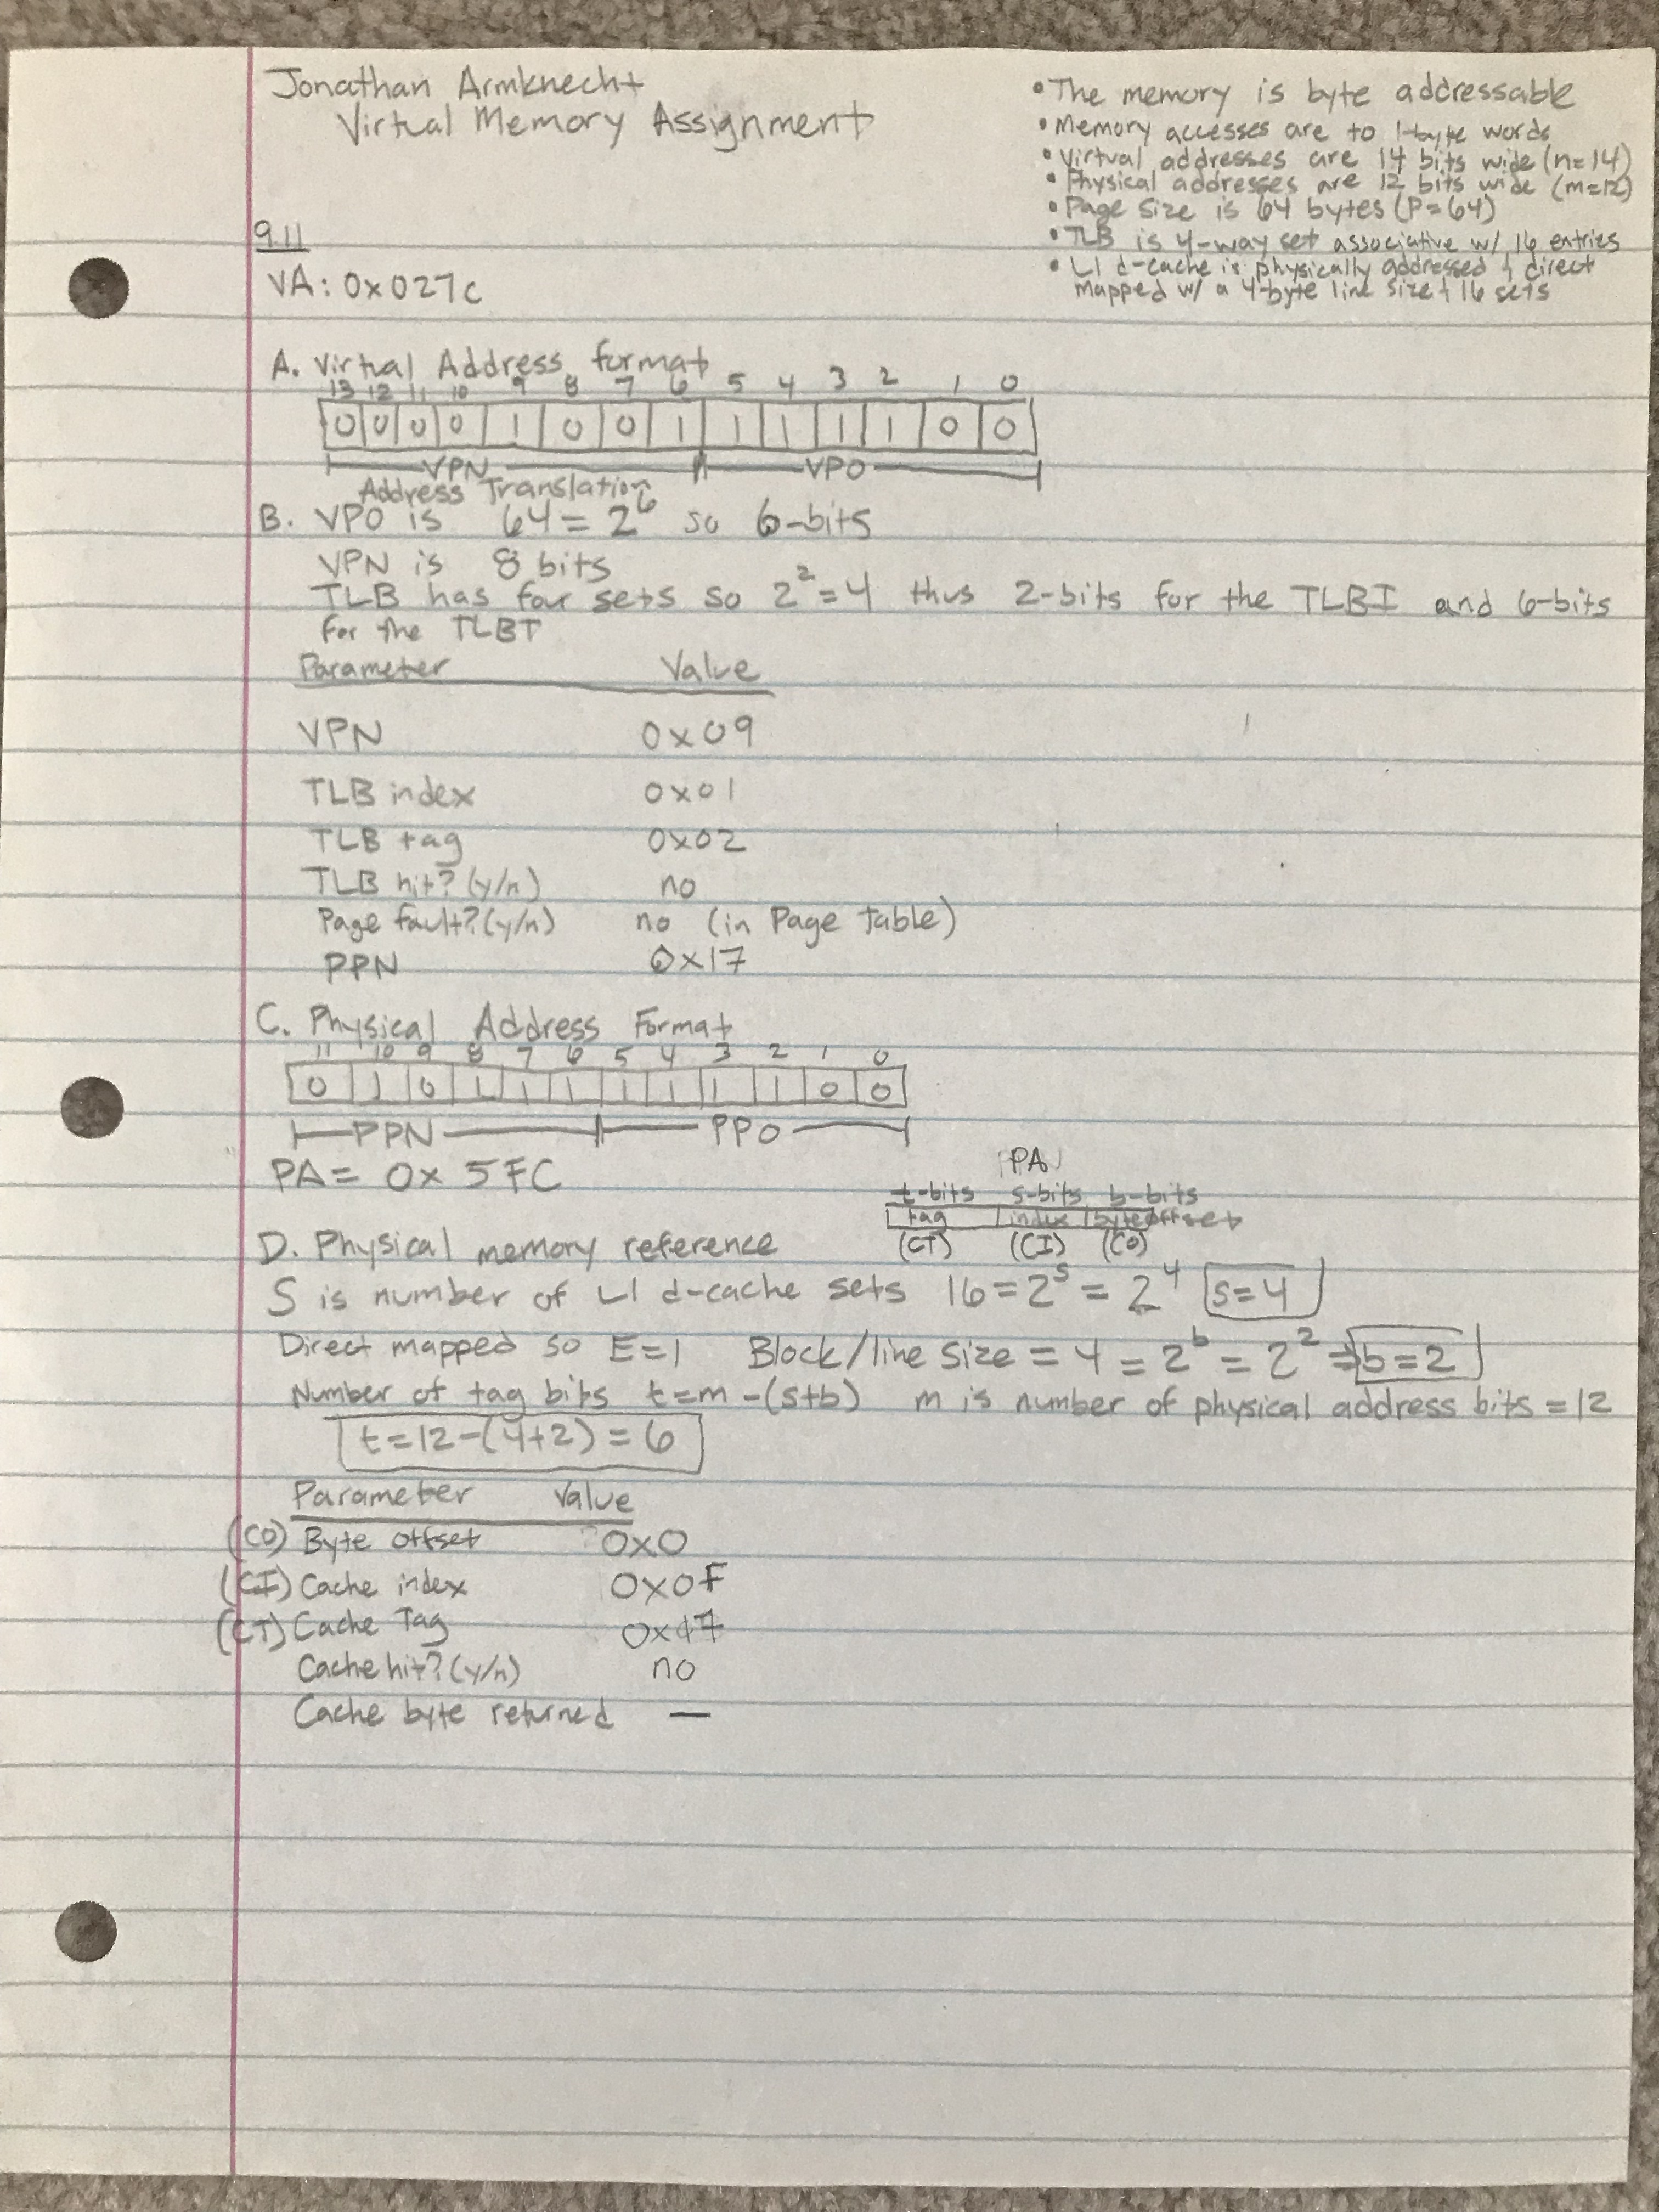 Jonathan Armknecht
Virtual Memory Assignment
• The memory is byte addressable
• Memory accesses are to 1-byte words
• Virtual addresses are 14 bits wide (n=14)
• Physical addresses are 12 bits wide (m=12)
• Page size is 64 bytes (P=64)
• TLB is 4-way set associative w/ 16 entries
• L1 d-cache is physically addressed & direct
mapped w/ a 4-byte line size & 16 sets
9.11
VA: 0x027c
A. Virtual Address format
13 12 11 10 9 8 7 6 5 4 3 2 1 0
0 0 0 0 1 0 0 1 1 1 1 1 0 0
VPN VPO
Address Translation
B. VPO is 64 = 2^6 so 6-bits
VPN is 8 bits
TLB has four sets so 2^2 = 4 thus 2-bits for the TLBI and 6-bits
for the TLBT
Parameter Value
VPN 0x09
TLB index 0x01
TLB tag 0x02
TLB hit? (y/n) no
Page fault? (y/n) no (in Page Table)
PPN 0x17
C. Physical Address Format
11 10 9 8 7 6 5 4 3 2 1 0
0 1 0 1 1 1 1 1 1 1 0 0
PPN PPO
PA = 0x 5FC
PA
t-bits s-bits b-bits
tag index byte offset
(CT) (CI) (CO)
D. Physical memory reference
S is number of L1 d-cache sets 16 = 2^s = 2^4 s=4
Direct mapped so E=1 Block/line size = 4 = 2^b = 2^2 ⇒ b=2
Number of tag bits t=m-(s+b) m is number of physical address bits = 12
t=12-(4+2) = 6
Parameter Value
(CO) Byte offset 0x0
(CI) Cache index 0x0F
(CT) Cache Tag 0x17
Cache hit? (y/n) no
Cache byte returned —